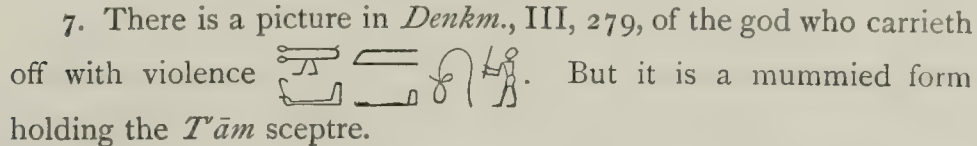 7. There is a picture in Denkm., III, 279, of the god who carrieth
off with violence . But it is a mummied form
holding the T'ām sceptre.